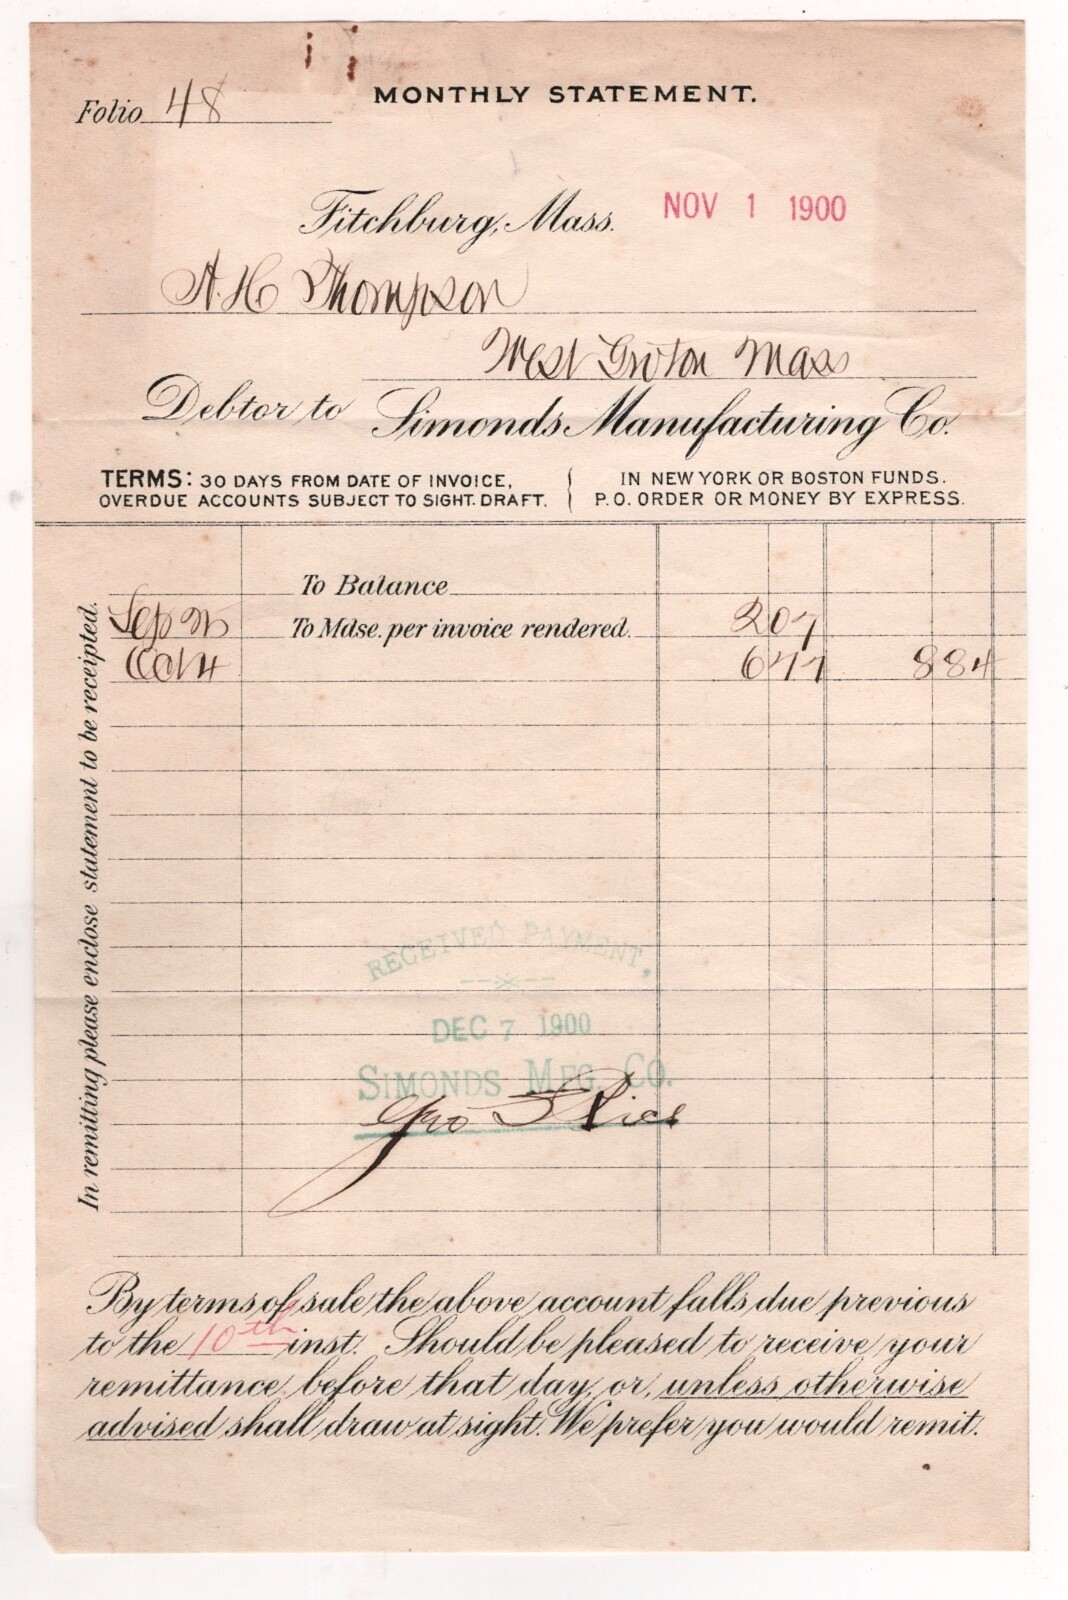 Folio 48
MONTHLY STATEMENT.
Fitchburg, Mass. NOV 1 1900
A. H. Thompson
West Groton Mass
Debtor to Simonds Manufacturing Co.
TERMS: 30 DAYS FROM DATE OF INVOICE, IN NEW YORK OR BOSTON FUNDS.
OVERDUE ACCOUNTS SUBJECT TO SIGHT DRAFT. P.O. ORDER OR MONEY BY EXPRESS.
To Balance
Sep To Mdse. per invoice rendered. 2 07
Oct 4 6 77 8 84
In remitting please enclose statement to be receipted.
RECEIVED PAYMENT,
DEC 7 1900
SIMONDS MFG. CO.
Geo F Rice
By terms of sale the above account falls due previous
to the 10th inst. Should be pleased to receive your
remittance before that day, or, unless otherwise
advised shall draw at sight. We prefer you would remit.